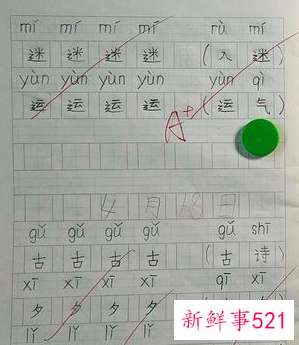 mí mí mí mí rù mí
迷 迷 迷 迷 (入 迷)
yùn yùn yùn yùn yùn qì
运 运 运 运 (运 气)
A+
4月28日
gǔ gǔ gǔ gǔ gǔ shī
古 古 古 古 (古 诗)
xī xī xī xī qī xī
夕 夕 夕 夕
lǐ lǐ lǐ
新鲜事521